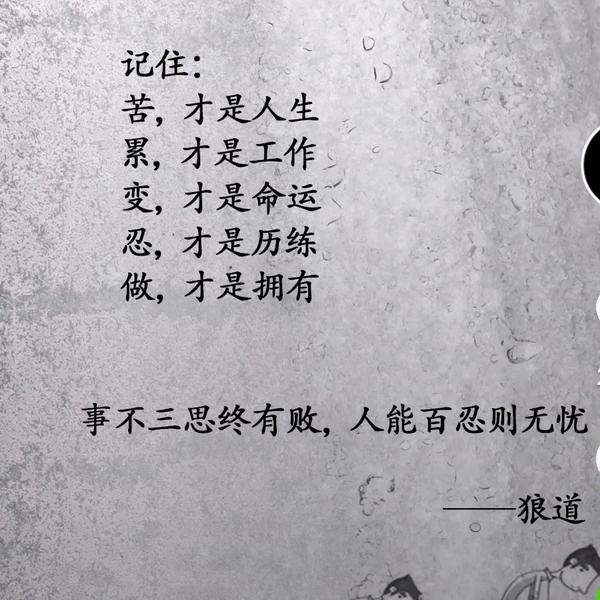 记住：
苦，才是人生
累，才是工作
变，才是命运
忍，才是历练
做，才是拥有
事不三思终有败，人能百忍则无忧
——狼道